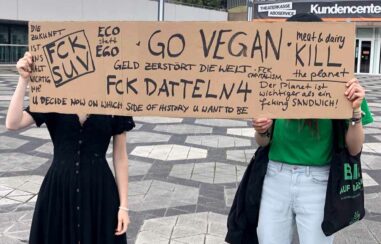 THEATERKASSE
ABOSERVICE
Kundencenter
DIE
ZUKUNFT
IST
UNS
NICHT
WICHTIG
FCK
SUV
ECO
statt
EGO
GO VEGAN
GELD ZERSTÖRT DIE WELT
FCK
CAPITALISM
FCK DATTELN 4
U DECIDE NOW ON WHICH SIDE OF HISTORY U WANT TO BE
meat & dairy
KILL
the planet
Der Planet ist
wichtiger als ein
fcking SANDWICH!
BAUF